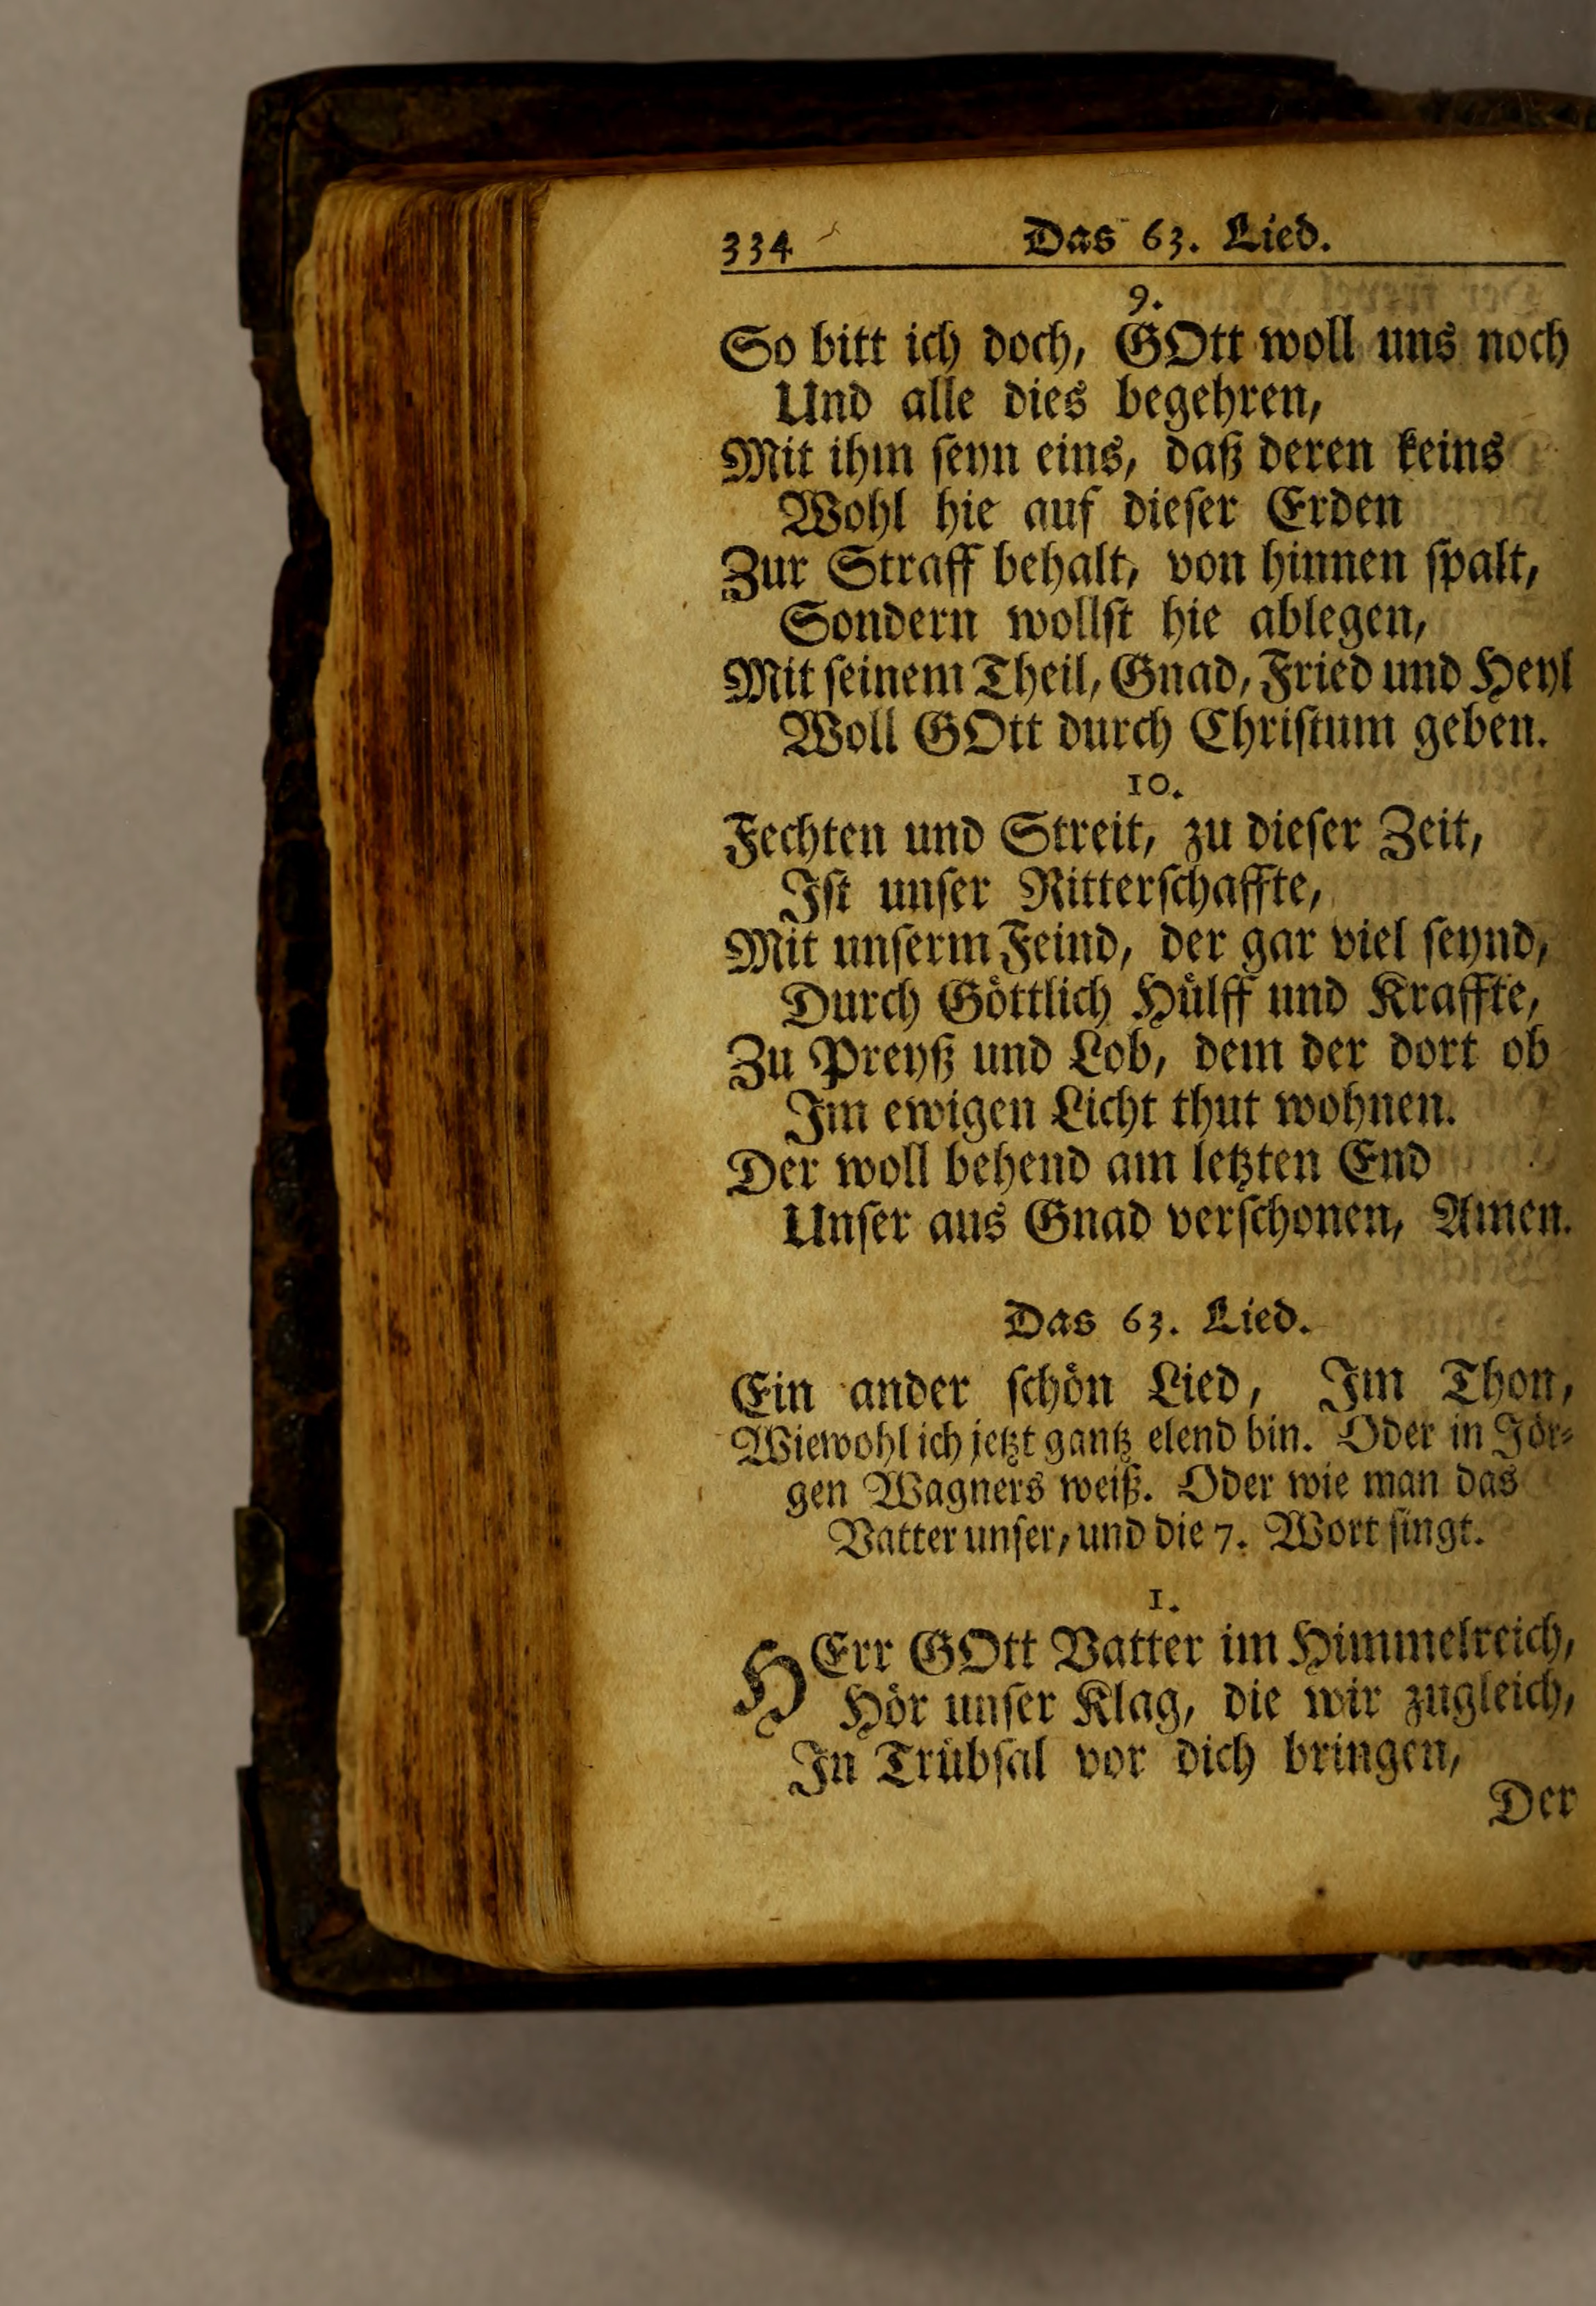 334 Das 63. Lied.
9.
So bitt ich doch, GOtt woll uns noch
Und alle dies begehren,
Mit ihm ſeyn eins, daß deren keins
Wohl hie auf dieſer Erden
Zur Straff behalt, von hinnen ſpalt,
Sondern wollſt hie ablegen,
Mit ſeinem Theil, Gnad, Fried und Heyl
Woll GOtt durch Chriſtum geben.
10.
Fechten und Streit, zu dieſer Zeit,
Iſt unſer Ritterſchaffte,
Mit unſerm Feind, der gar viel ſeynd,
Durch Goͤttlich Huͤlff und Kraffte,
Zu Preyß und Lob, dem der dort ob
Im ewigen Licht thut wohnen.
Der woll behend am letzten End
Unſer aus Gnad verſchonen, Amen.
Das 63. Lied.
Ein ander ſchoͤn Lied, Im Thon,
Wiewohl ich jetzt gantz elend bin. Oder in Joͤr⸗
gen Wagners weiß. Oder wie man das
Vatter unſer, und die 7. Wort ſingt.
1.
HErr GOtt Vatter im Himmelreich,
Hoͤr unſer Klag, die wir zugleich,
In Truͤbſal vor dich bringen,
Der